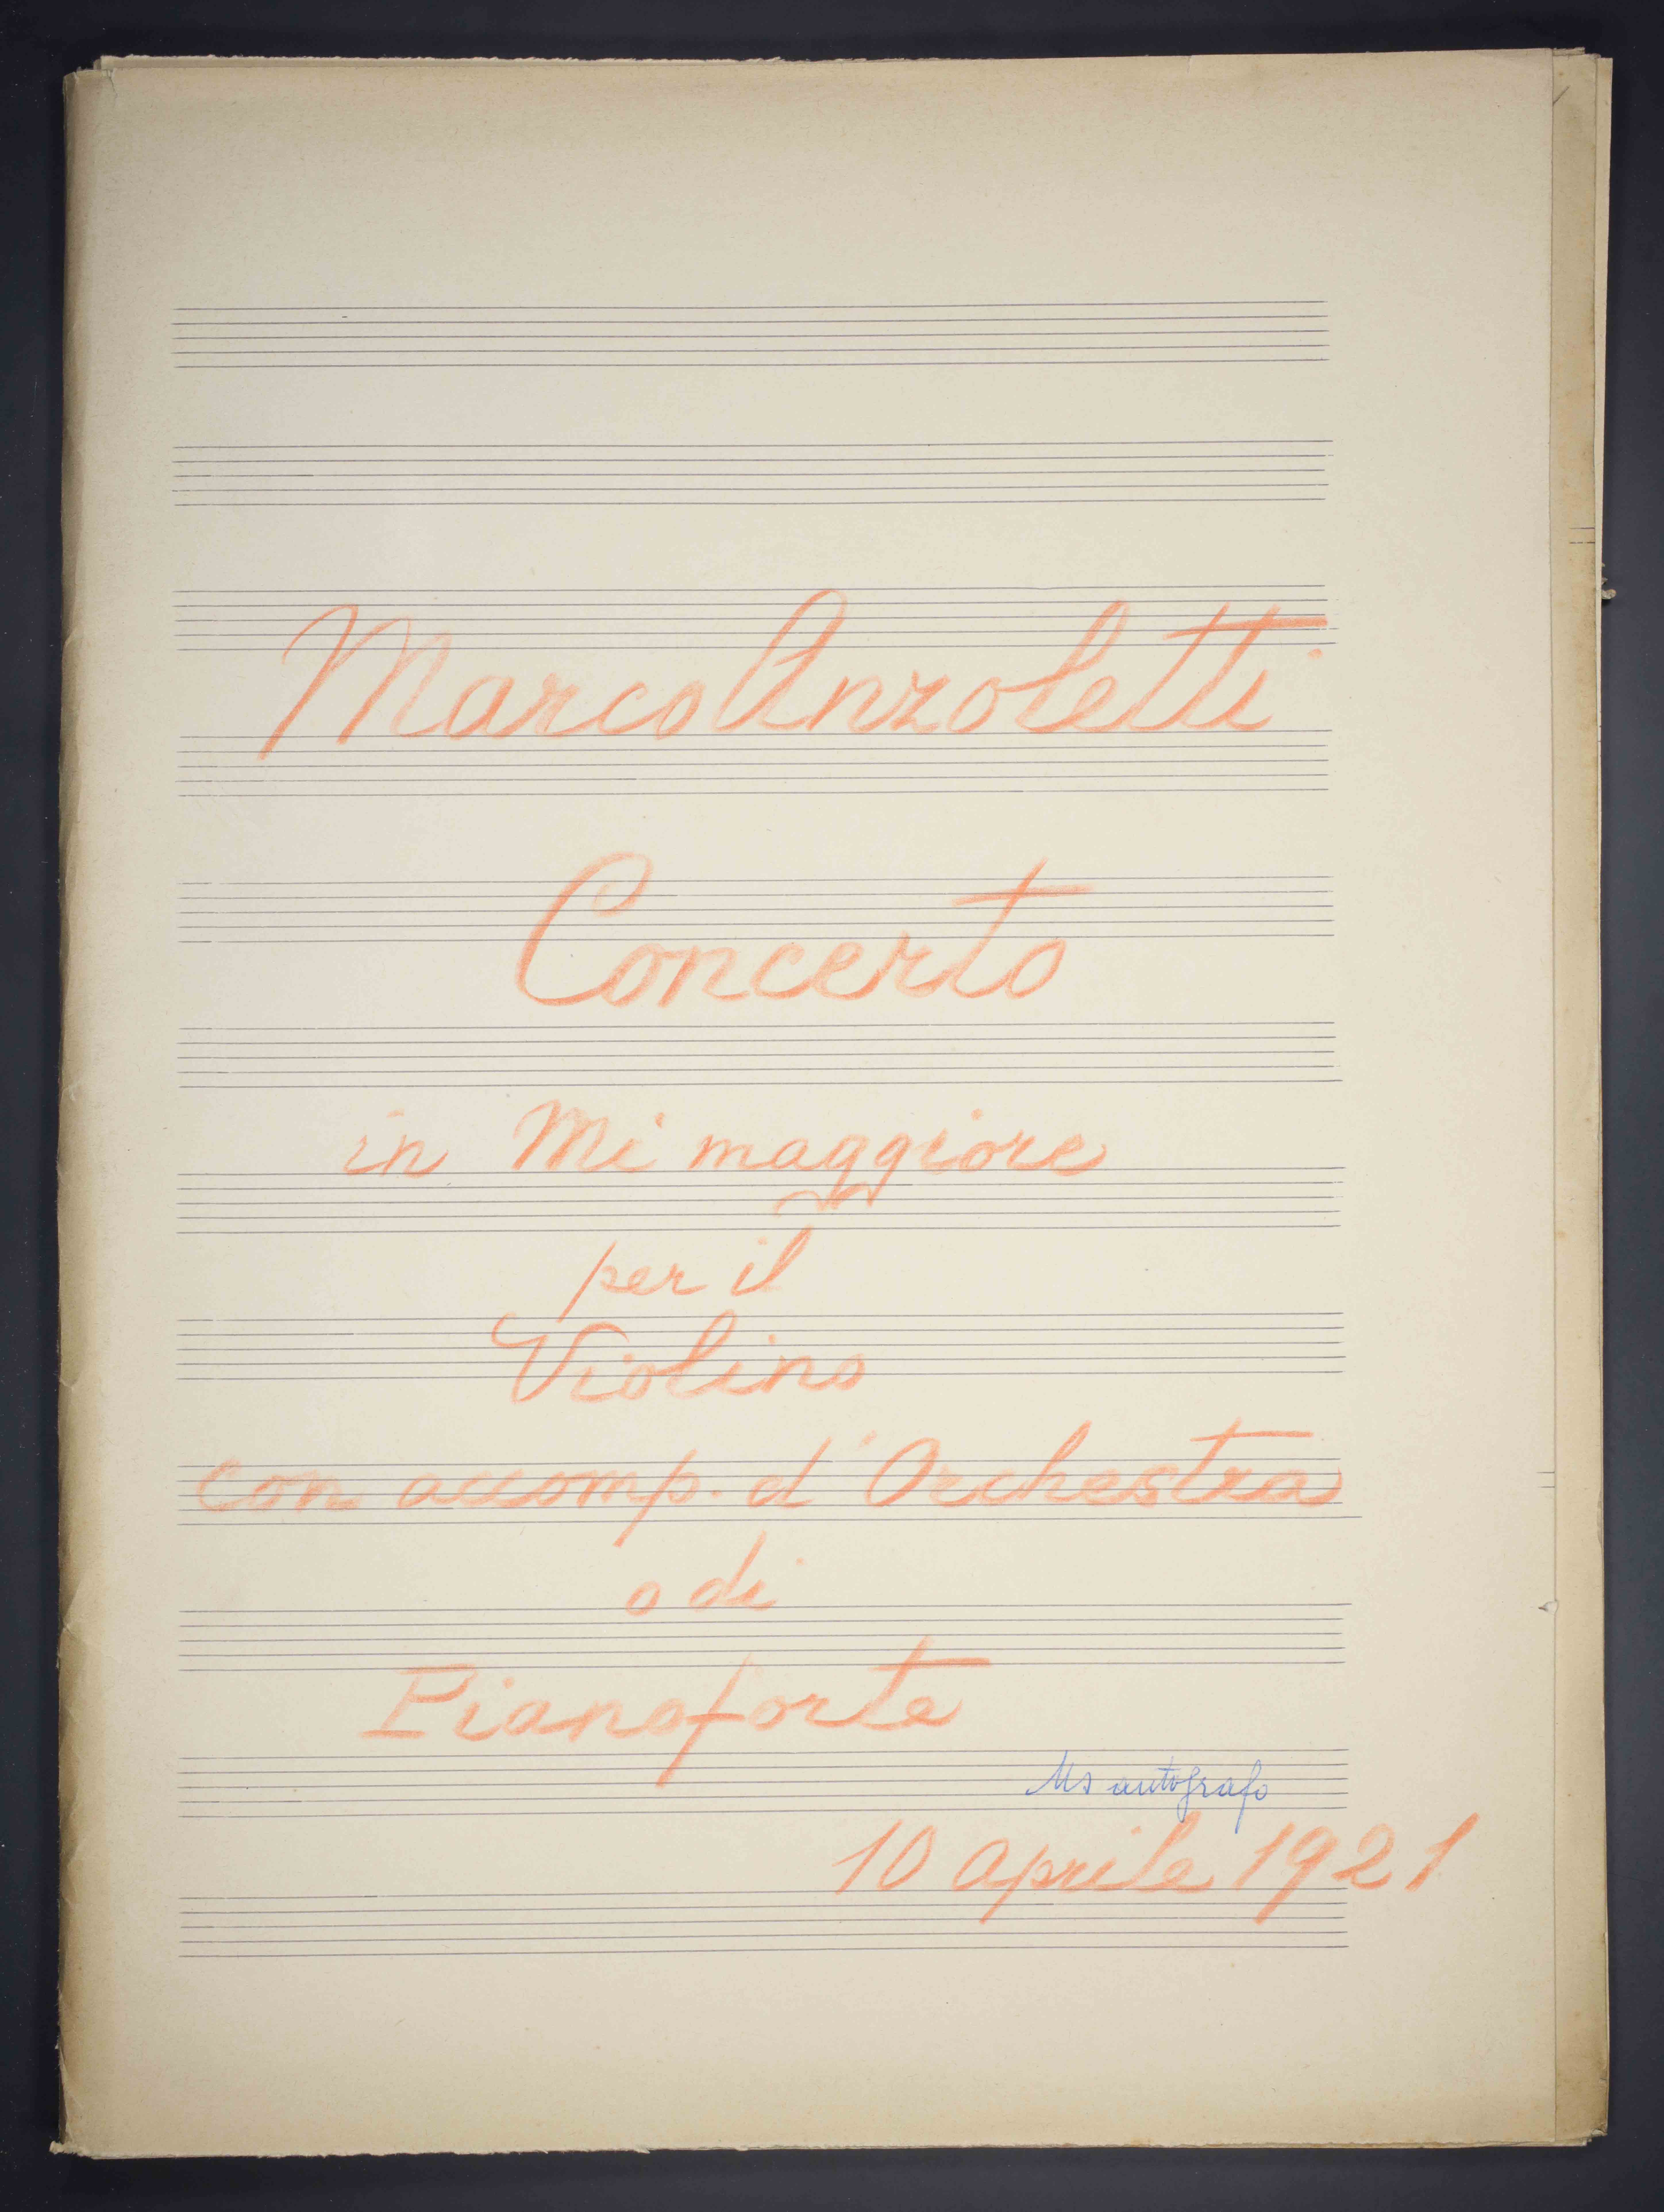 Marco Anzoletti
Concerto
in Mi maggiore
per il
Violino
con accomp. d'Orchestra
o di
Pianoforte
Ms autografo
10 aprile 1921